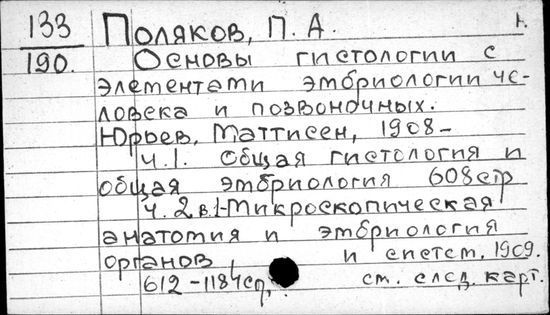 133 Поляков, П. А. н.
190. Основы гистологии с
элементами эмбриологии че-
ловека и позвоночных.
Юрьев, Маттисен, 1908-
ч.1. общая гистология и
общая эмбриология 608стр
ч. 2 в.1-Микроскопическая
анатомия и эмбриология
органов, и систем. 1909.
612-1184ср. см. след. карт.